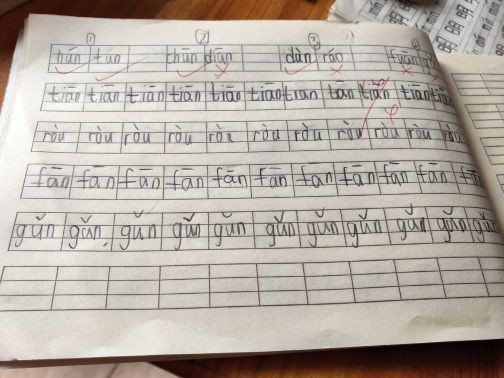 ① ② ③ ④
hún tún chūn diān dàn ráo fuān
tiān tiān tiān tiān tiān tiān tian tān tiān tiān tiān
ròu ròu ròu ròu ròu ròu ròu ròu ròu ròu ròu
fān fān fān fān fān fān fan fān fān fān
gǔn gǔn gǔn gǔn gǔn gǔn gǔn gǔn gǔn gǔn gǔn